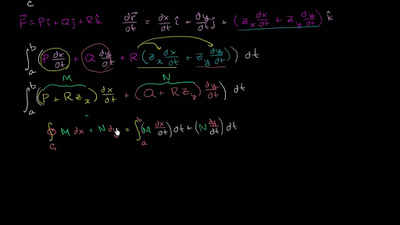 c
F = Pî + Qĵ + Rk̂   dr/dt = dx/dt î + dy/dt ĵ + (z_x dx/dt + z_y dy/dt) k̂
∫_a^b (P dx/dt + Q dy/dt + R (z_x dx/dt + z_y dy/dt)) dt
M N
∫_a^b ((P + R z_x) dx/dt + (Q + R z_y) dy/dt) dt
∮_{C_1} M dx + N dy = ∫_a^b (M dx/dt) dt + (N dy/dt) dt